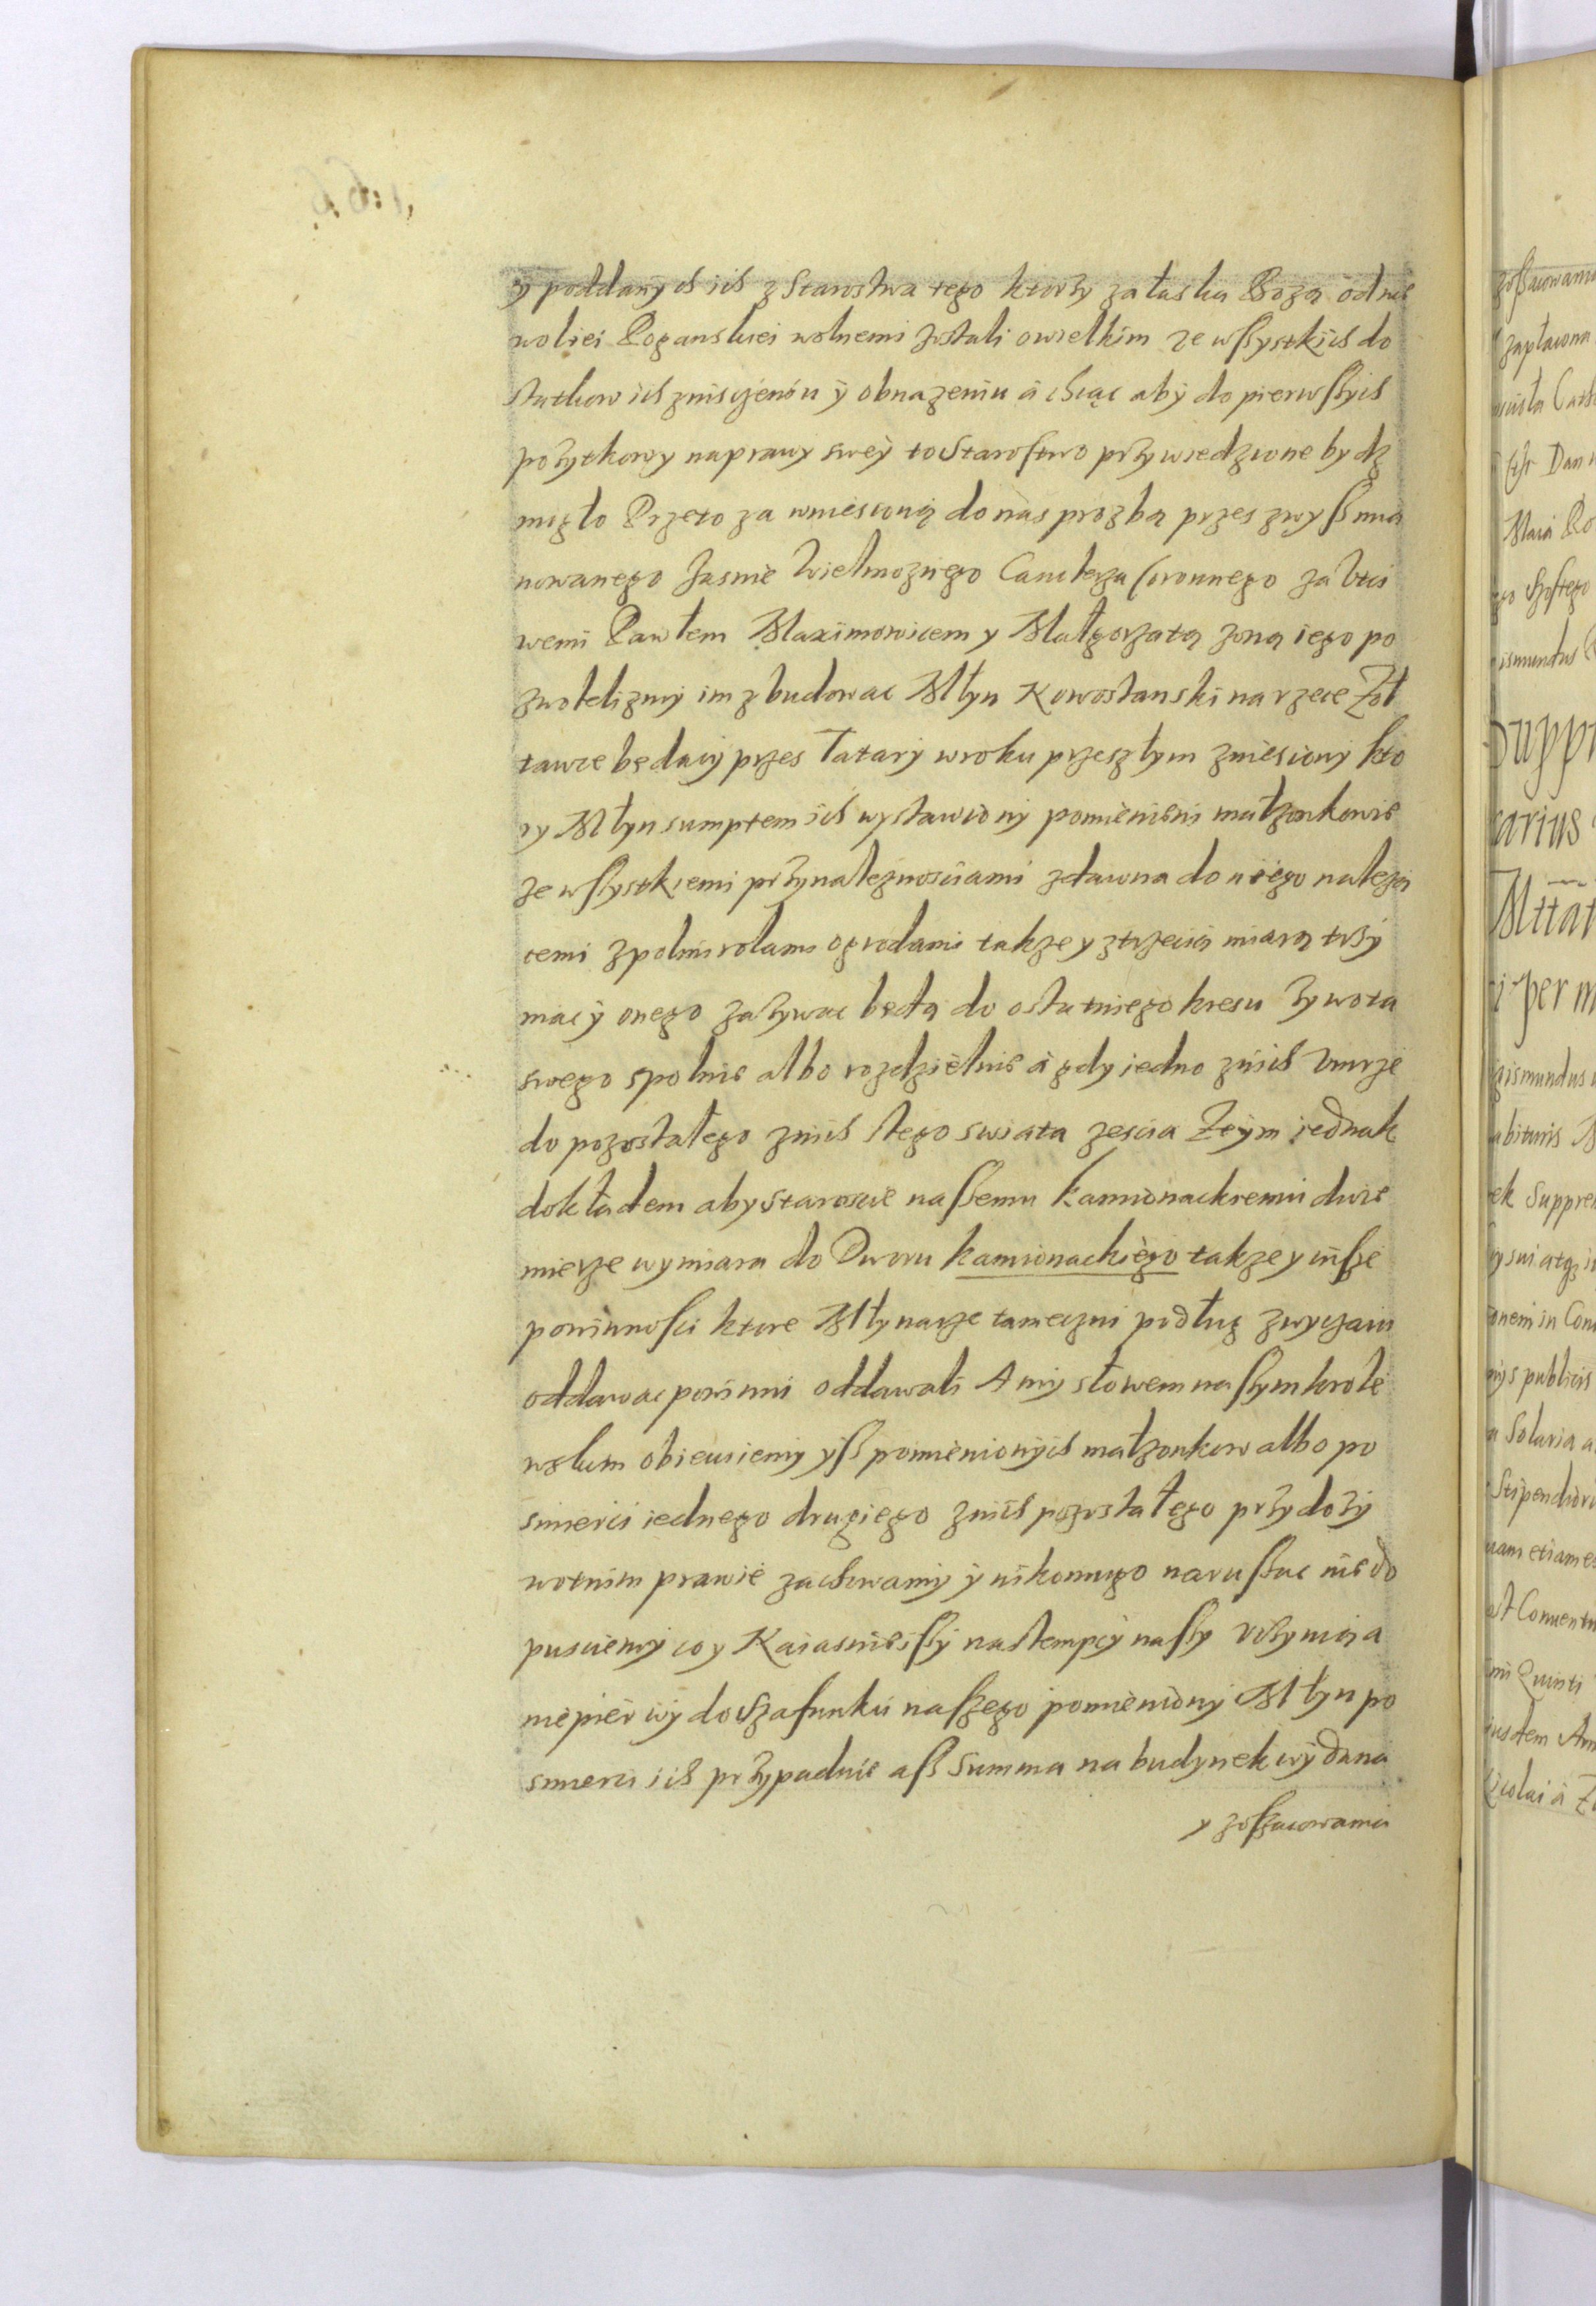 y poddanych ich z Starostwa tego ktorzy za łaską Bozą od nie
woliei Poganskiei wolnemi zostali o wielkim ze wszystkich do
statkow ich znisczeniu y obnazeniu a chcąc aby do pierwszych
pozytkow y naprawy swey to Starostwo przywiedzione bydz
mogło Przeto za wniesioną do nas prozbą przez zwysz mia
nowanego Jasnie Wielmoznego Canclerza Coronnego za Vcci
wemi Pawłem Maximowicem y Małgorzatą zoną iego po
zwolelizmy im zbudowac Młyn Nowostanski na rzece Zoł
tawce będący przes Tatary w roku przeszłym zniesiony kto
ry Młyn sumptem ich wystawiony pomienieni małzonkowie
ze wszystkiemi przynaleznosciami zdawna do niego nalezą
cemi z polmi rolami ogrodami takze y z trzecią miarą trzy
mac y onego zazywac będą do ostatniego kresu zywota
swego spolnie albo rozdzielnie a gdy iedno z nich Vmrze
do pozostałego z nich s tego swiata zescia Z tym iednak
dokładem aby Staroscie naszemu kamionackiemu dwie
mierze wymiara do Dworu kamionackiego takze y insze
powinnosci ktore Młynarze tameczni podług zwyczaiu
oddawac powinni oddawali A my słowem naszym krole
wskim obiecuiemy ysz pomienionych małzonkow albo po
smierci iednego drugiego z nich pozostałego przy dozy
wotnim prawie zachowamy y nikomugo naruszac nie do
puscimy co y Naiasnieiszy nastempcy naszy vczynią a
niepierwy do Szafunku naszego pomieniony Młyn po
smierci ich przypadnie asz Summa na budynek wydana
y zoszacowania